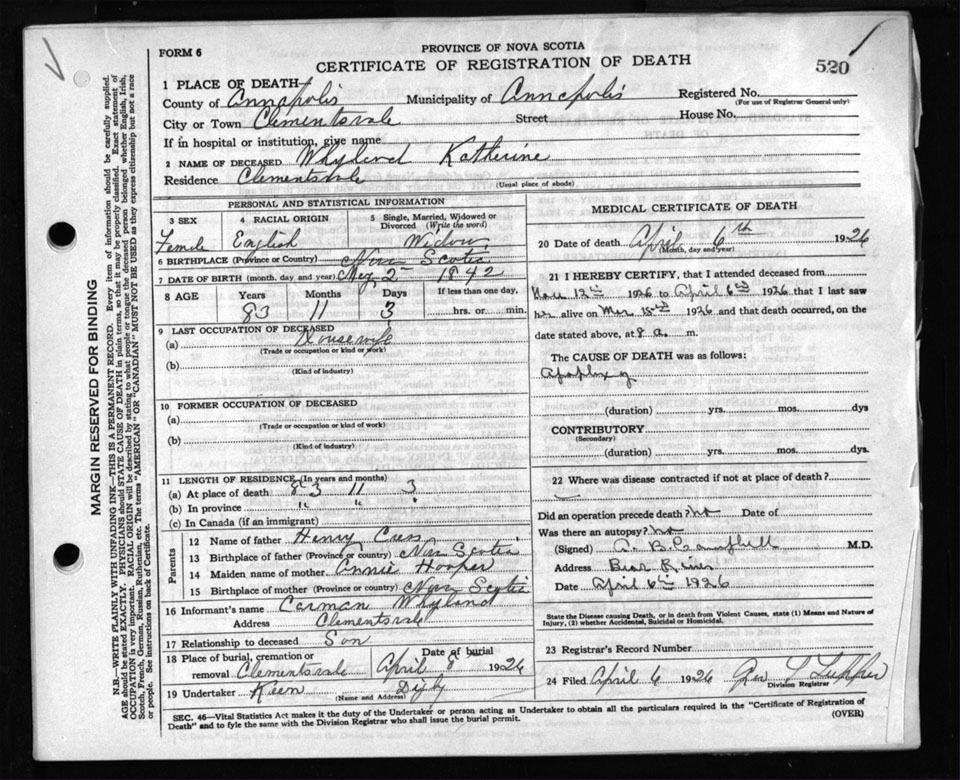 FORM 6
PROVINCE OF NOVA SCOTIA
CERTIFICATE OF REGISTRATION OF DEATH
520
1 PLACE OF DEATH
County of Annapolis Municipality of Annapolis Registered No.
(For use of Registrar General only)
City or Town Clementsvale Street House No.
If in hospital or institution, give name
2 NAME OF DECEASED Whyland Katherine
Residence Clementsvale
(Usual place of abode)
PERSONAL AND STATISTICAL INFORMATION
3 SEX 4 RACIAL ORIGIN 5 Single, Married, Widowed or Divorced (Write the word)
Female English Widow
6 BIRTHPLACE (Province or Country) Nova Scotia
7 DATE OF BIRTH (month, day, and year) May 2 1842
8 AGE Years Months Days If less than one day,
83 11 3 hrs. or min.
9 LAST OCCUPATION OF DECEASED
(a) Housewife
(Trade or occupation or kind or work)
(b)
(Kind of industry)
10 FORMER OCCUPATION OF DECEASED
(a)
(Trade or occupation or kind of work)
(b)
(Kind of industry)
11 LENGTH OF RESIDENCE (In years and months)
(a) At place of death 83 11 3
(b) In province " " "
(c) In Canada (if an immigrant)
Parents
12 Name of father Henry Cress
13 Birthplace of father (Province or country) Nova Scotia
14 Maiden name of mother Annie Hooper
15 Birthplace of mother (Province or country) Nova Scotia
16 Informant's name Carman Whyland
Address Clementsvale
17 Relationship to deceased Son
18 Place of burial, cremation or removal Clementsvale Date of burial April 8 1926
19 Undertaker Keen Digby
(Name and Address)
MEDICAL CERTIFICATE OF DEATH
20 Date of death April 6th 1926
(Month, day and year)
21 I HEREBY CERTIFY, that I attended deceased from
12th 1926 to April 6th 1926 that I last saw
her alive on Mar 1926 and that death occurred, on the
date stated above, at 8 a. m.
The CAUSE OF DEATH was as follows:
Apoplexy
(duration) yrs. mos. dys
CONTRIBUTORY
(Secondary)
(duration) yrs. mos. dys.
22 Where was disease contracted if not at place of death?
Did an operation precede death? No Date of
Was there an autopsy? No
(Signed) A. B. Campbell M.D.
Address Bear River
Date April 6th 1926
State the Disease causing Death, or in death from Violent Causes, state (1) Means and Nature of
Injury, (2) whether Accidental, Suicidal or Homicidal.
23 Registrar's Record Number
24 Filed April 6 1926 Tupper
Division Registrar
SEC. 46—Vital Statistics Act makes it the duty of the Undertaker or person acting as Undertaker to obtain all the particulars required in the "Certificate of Registration of
Death" and to fyle the same with the Division Registrar who shall issue the burial permit.
(OVER)
MARGIN RESERVED FOR BINDING
N.B.—WRITE PLAINLY WITH UNFADING INK—THIS IS A PERMANENT RECORD. Every item of information should be carefully supplied.
AGE should be stated EXACTLY. PHYSICIANS should STATE CAUSE OF DEATH in plain terms, so that it may be properly classified. Exact statement of
OCCUPATION is very important. RACIAL ORIGIN will be described by stating to what people or tongue the deceased person belonged whether English, Irish,
Scotch, French, German, Russian, Ruthenian, etc. The terms "AMERICAN" OR "CANADIAN" MUST NOT BE USED as they express citizenship but not a race
or people. See instructions on back of Certificate.